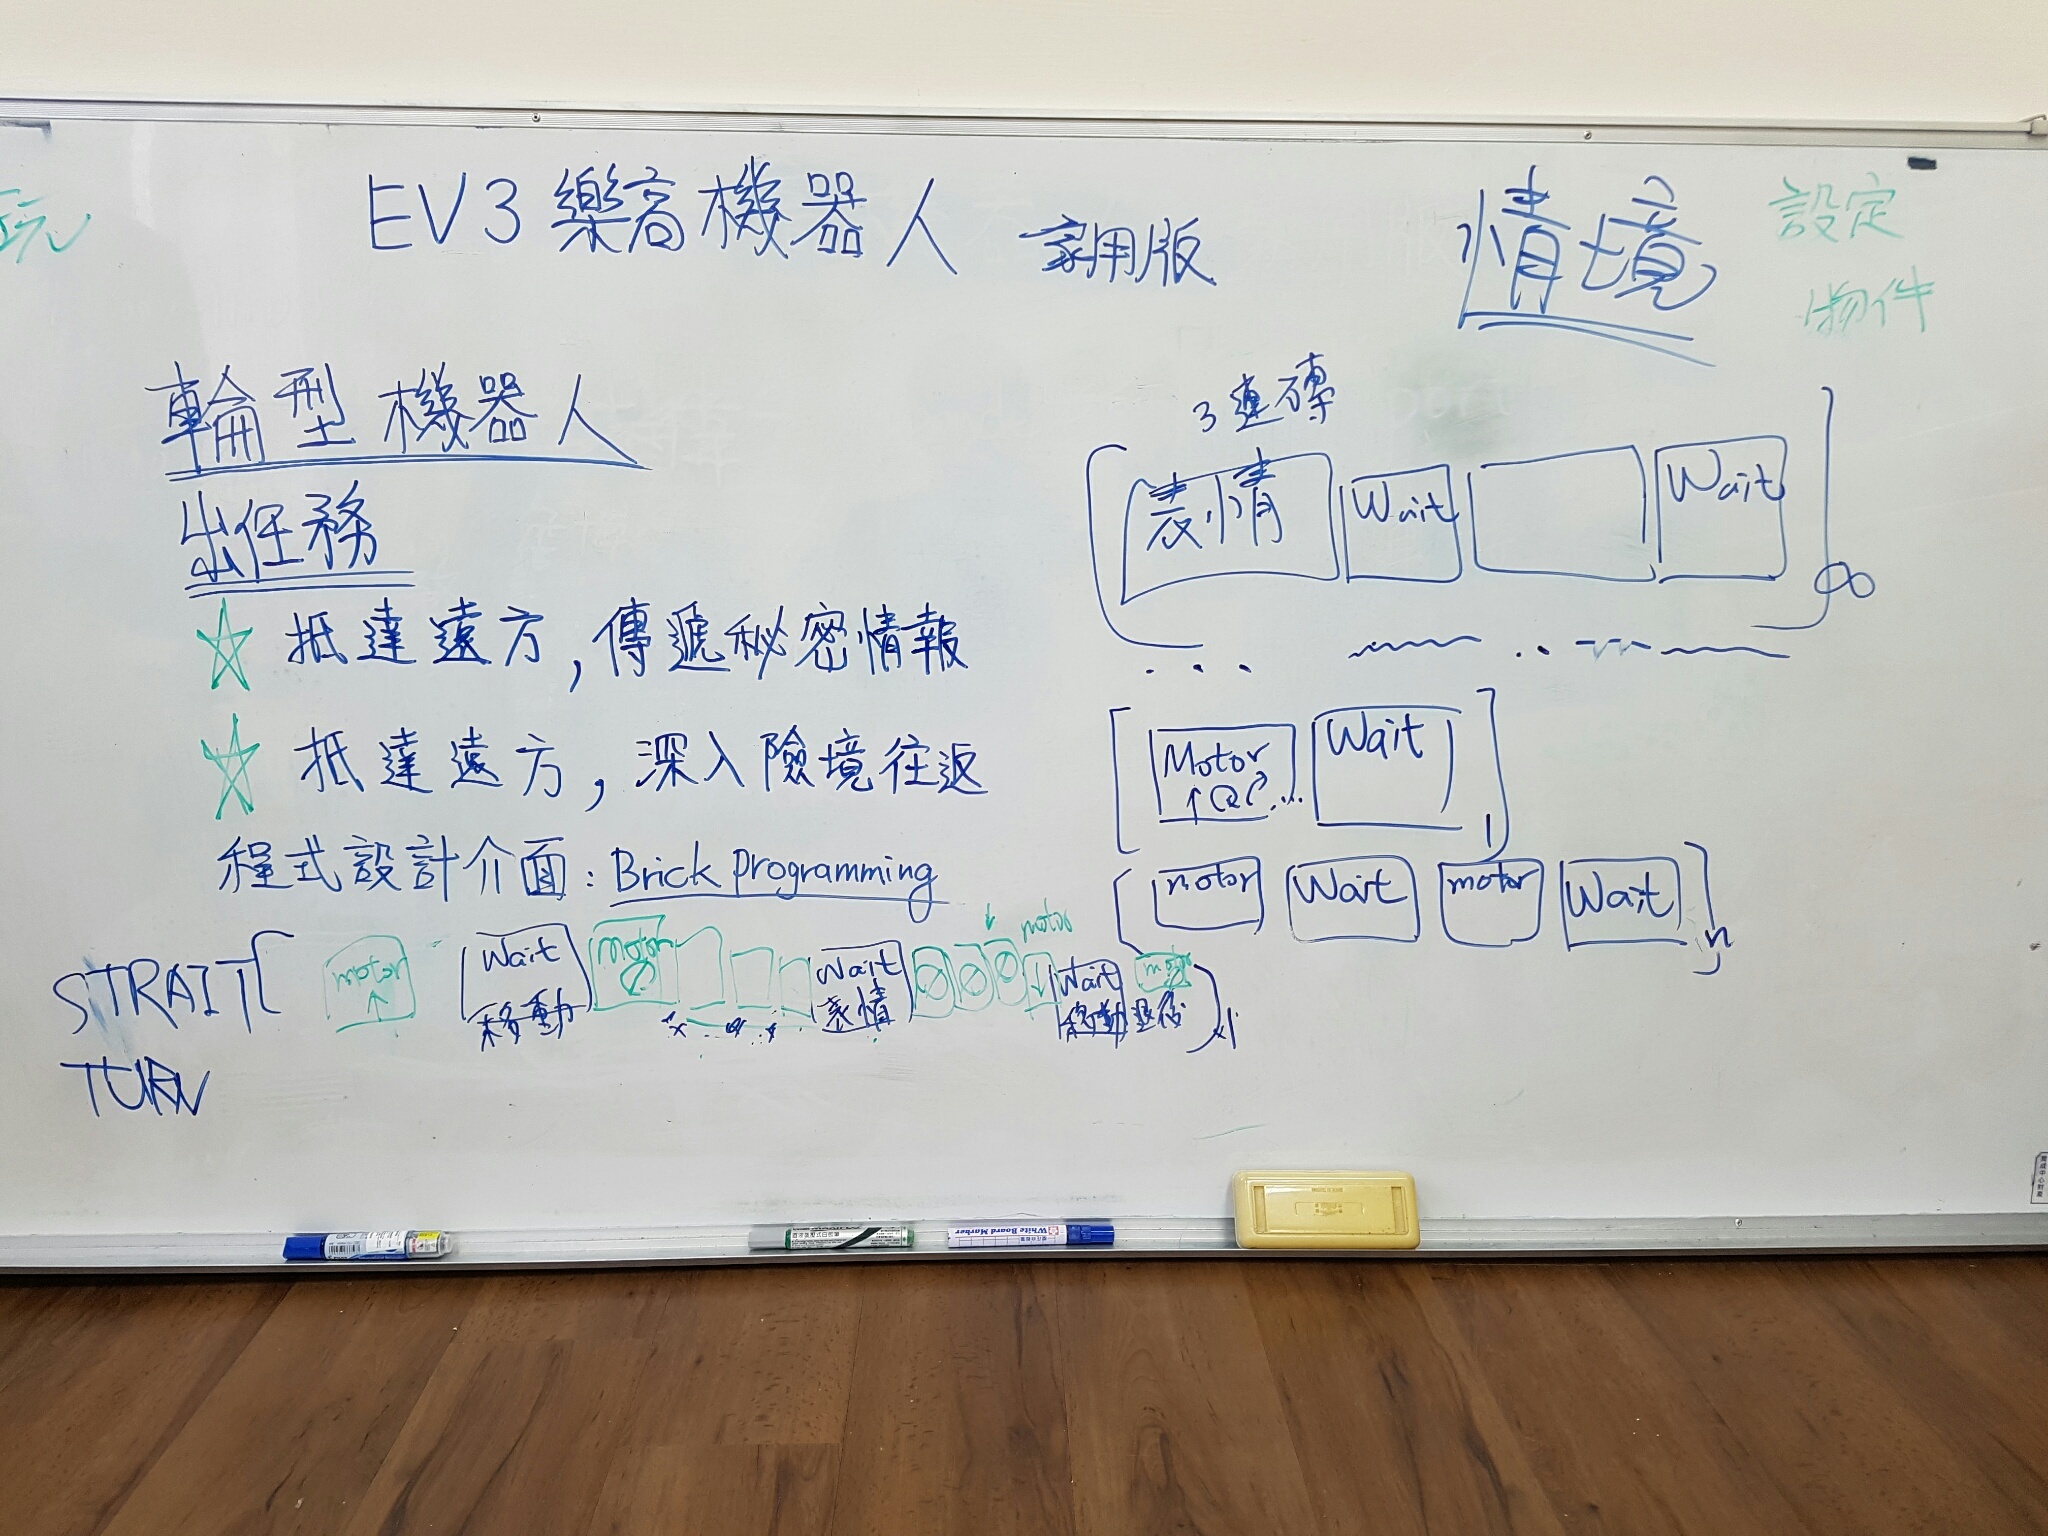 玩
EV3樂高機器人 家用版
情境
設定
物件
輪型機器人
出任務
☆ 抵達遠方,傳遞秘密情報
☆ 抵達遠方,深入險境往返
程式設計介面:Brick Programming
STRAIT
TURN
motor ↑
Wait 移動
Motor
Wait 表情
↓ motor
↓
Wait 移動
motor 退後
x1
3連磚
表情 Wait Wait ∞
Motor Wait 1
motor Wait motor Wait n
White Board Marker